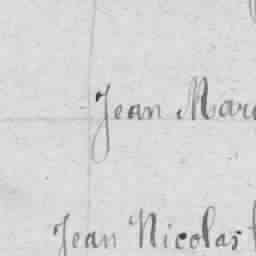 Jean Mar
Jean Nicolas